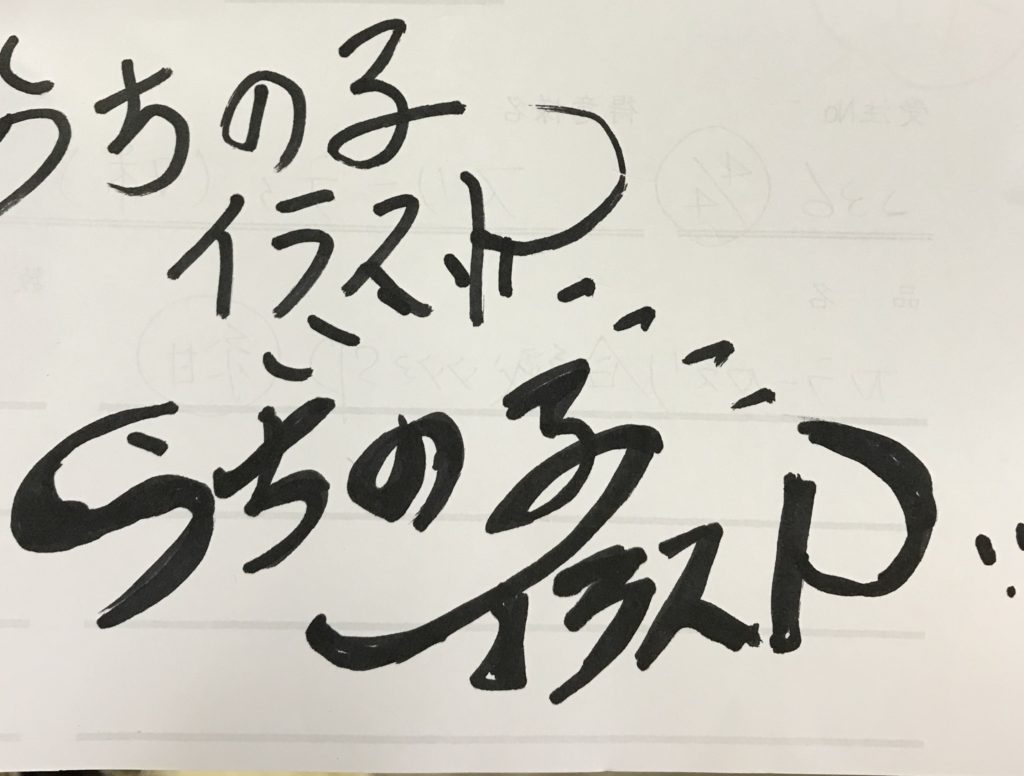 うちの子
イラスト
うちの子
イラスト